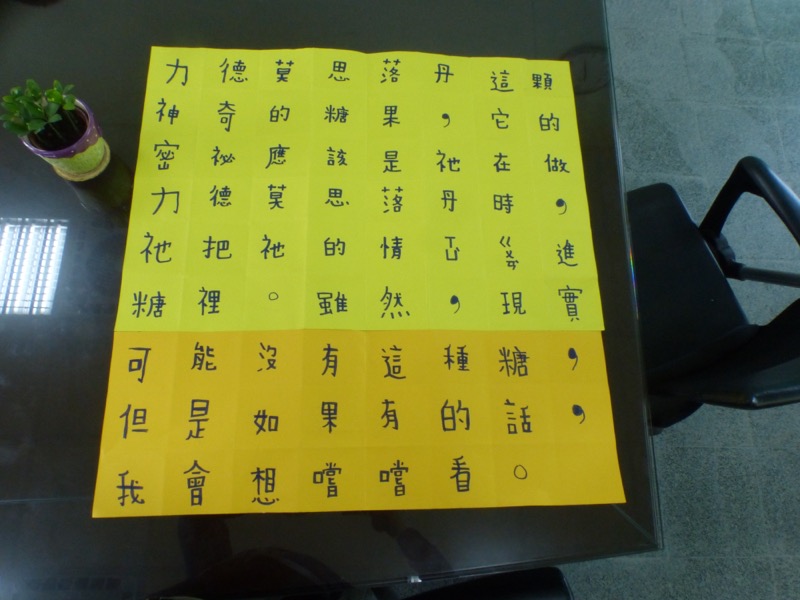 力德莫思落丹這顆
神奇的糖果，它的
密祕應該是祂在做
力德莫思落丹時，
祂把祂的情ㄒㄩˋ進
糖裡。雖然，現實
可能沒有這種糖，
但是如果有的話，
我會想嚐嚐看。